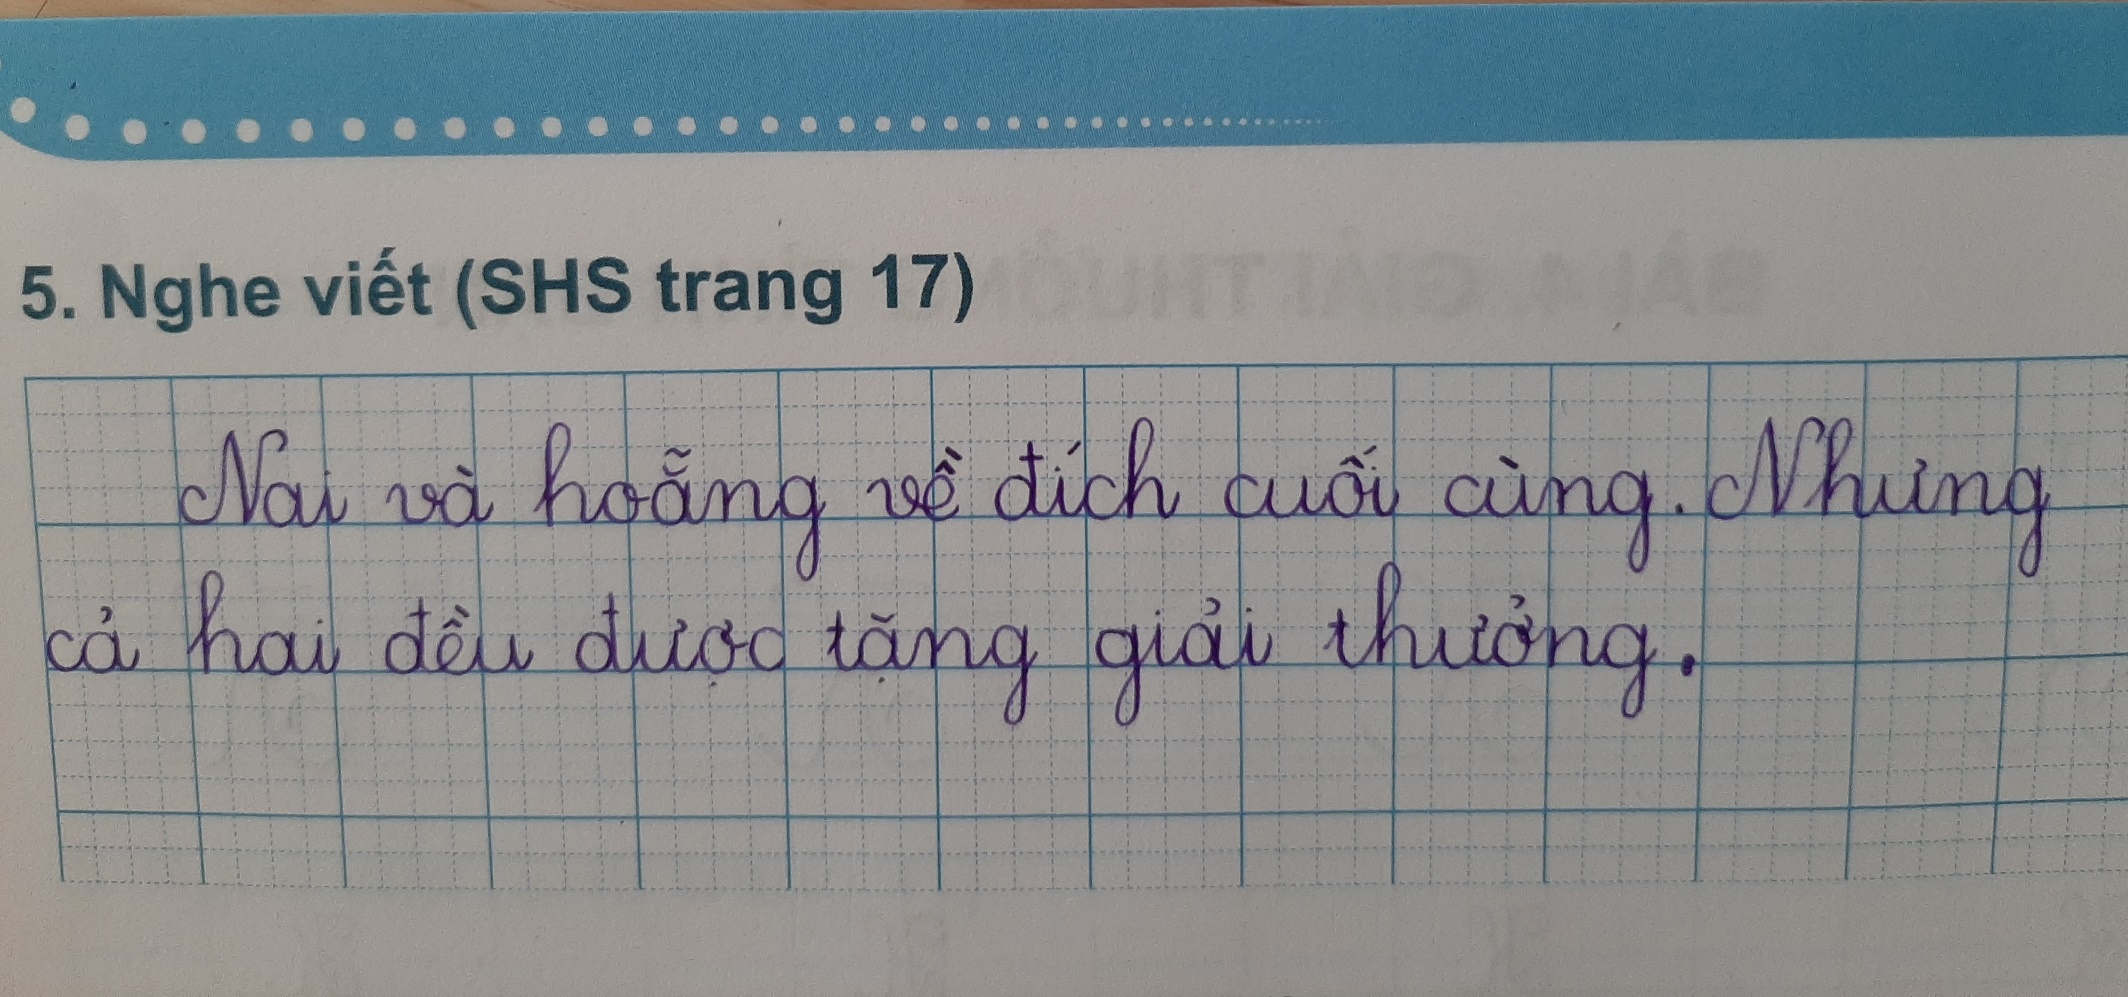 5. Nghe viết (SHS trang 17)
Nai và hoẵng về đích cuối cùng. Nhưng
cả hai đều được tặng giải thưởng.